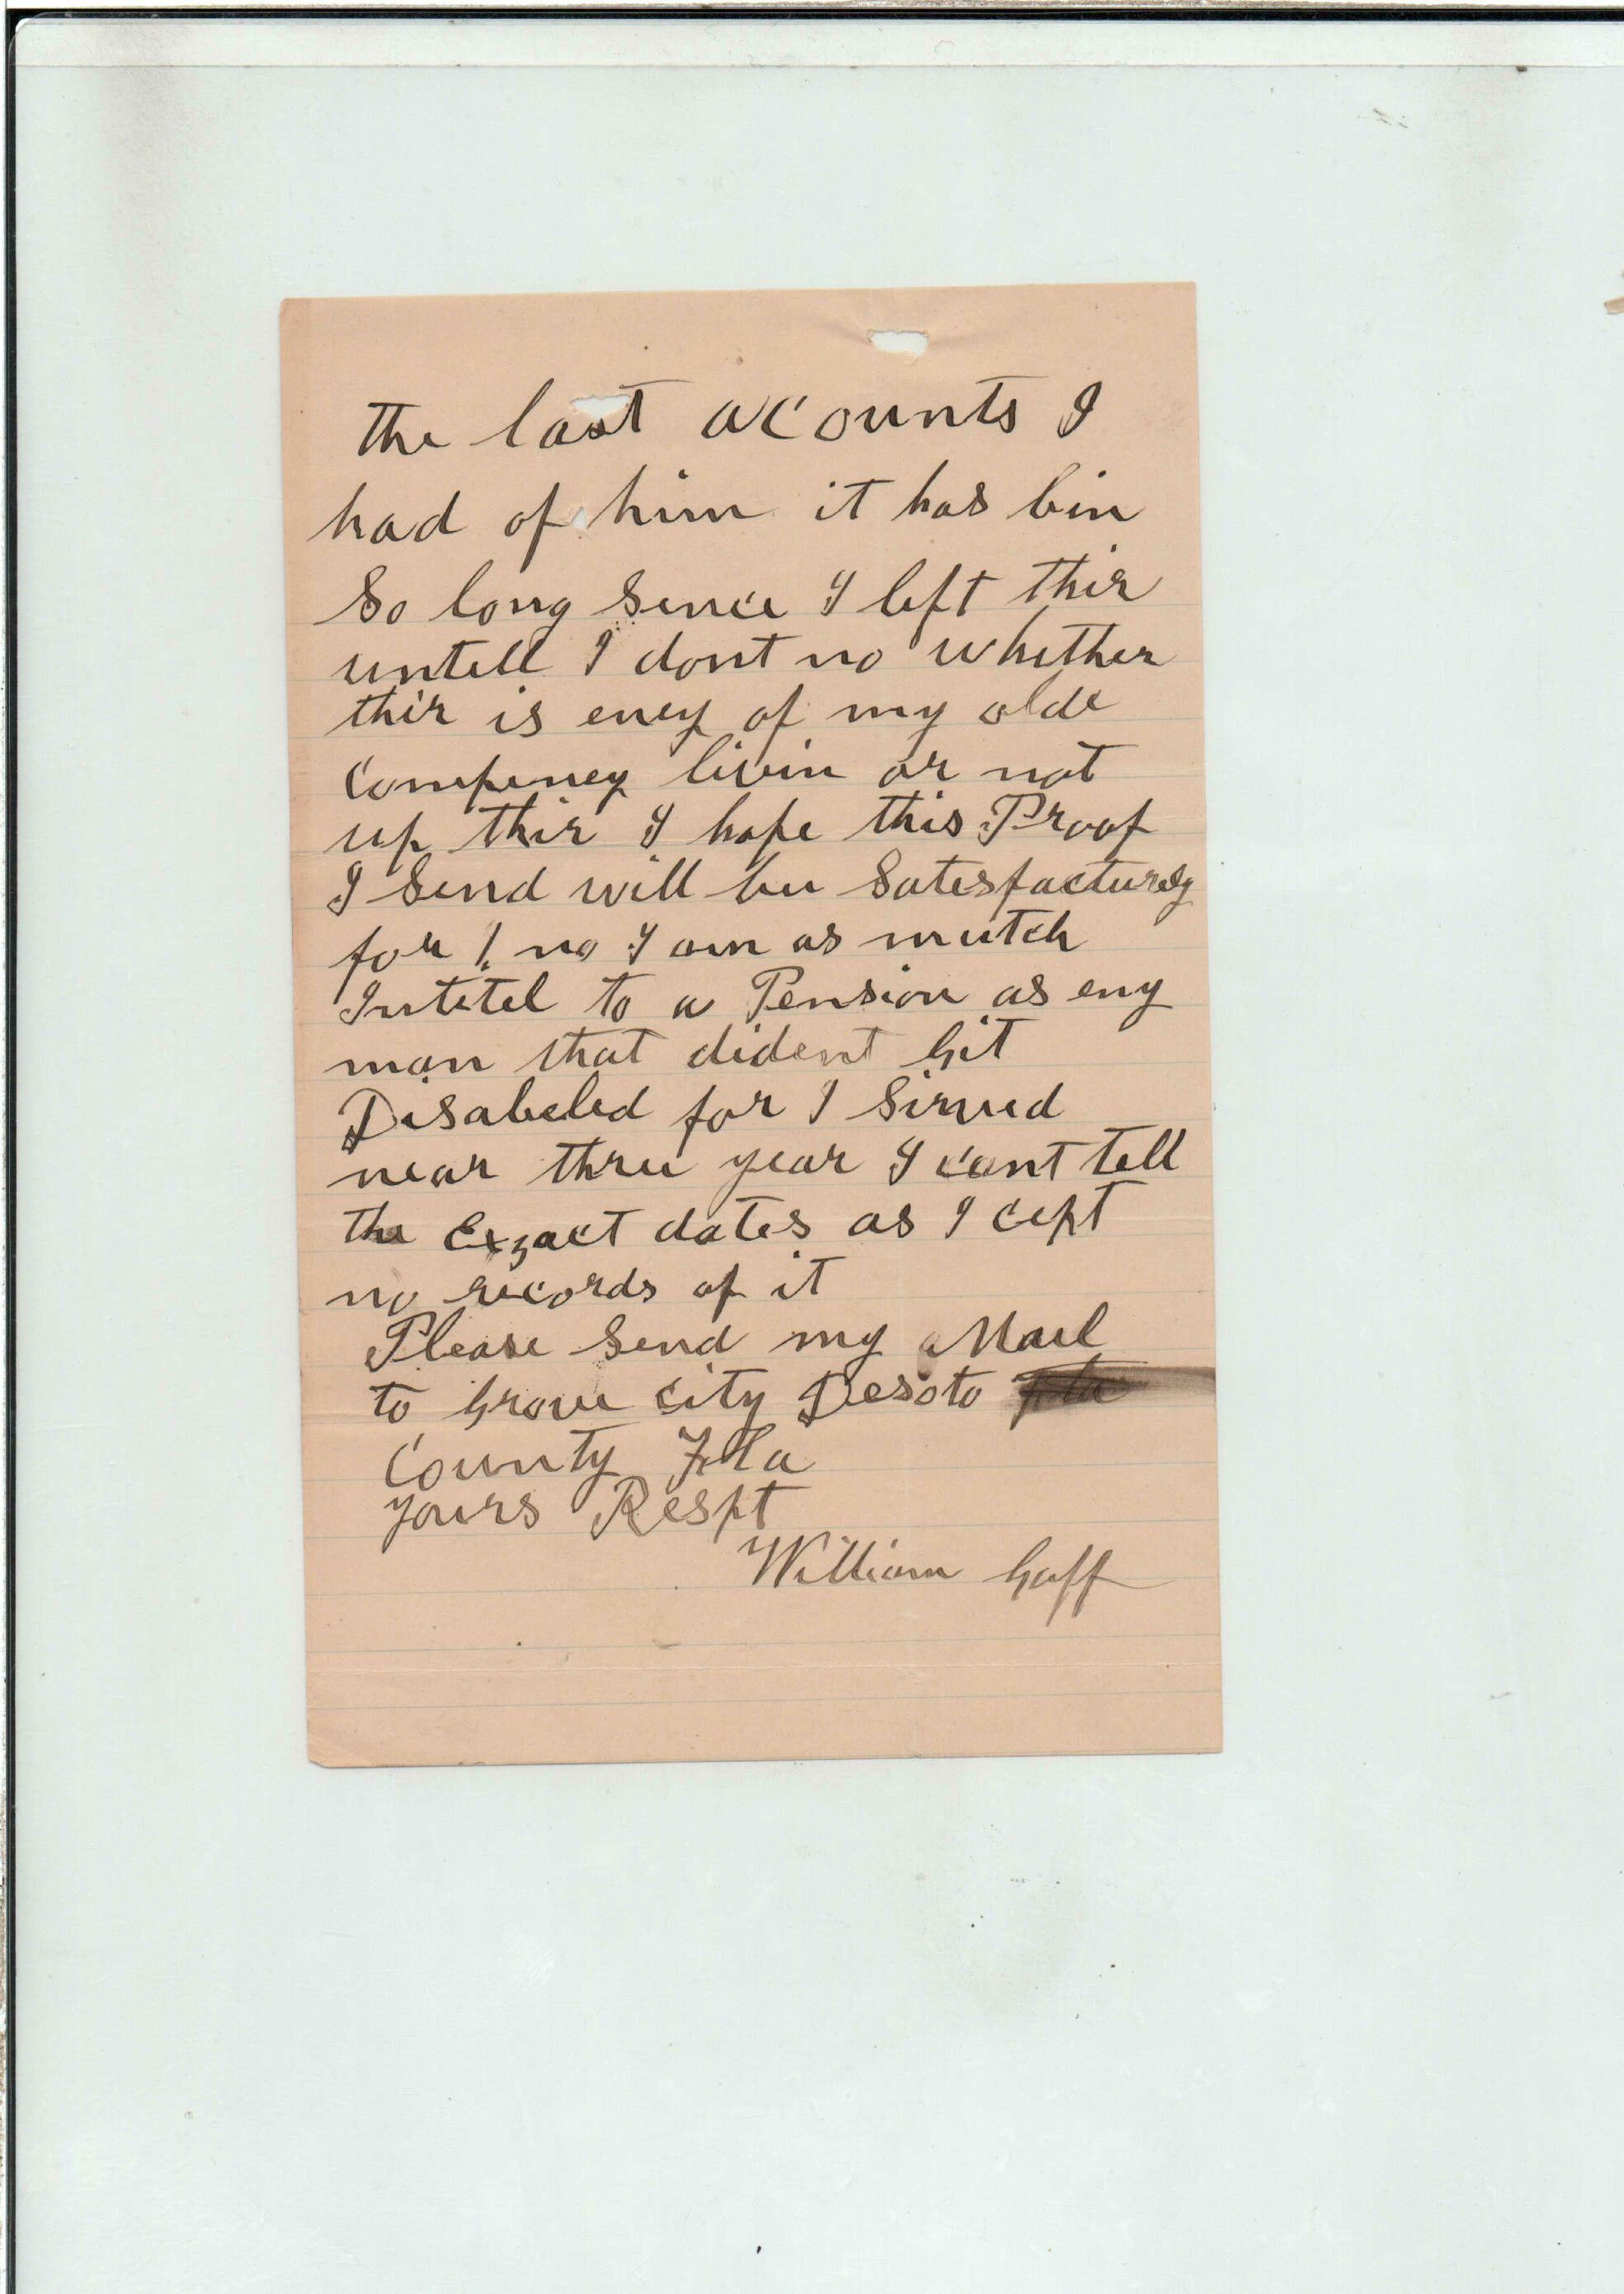 the last acounts I
had of him it has bin
So long Sence I left thir
untell I dont no whether
thir is eney of my olde
Compeney livin or not
up thir I hope this Proof
I Send will be Satesfacturey
for I no I am as mutch
Intetel to a Pension as eny
man that dident Git
Disabeled for I Sirved
near three year I cant tell
the Exzact dates as I cept
no records of it
Please Send my Mail
to Grove City Desoto
County Fla
yours Respt
William Goff